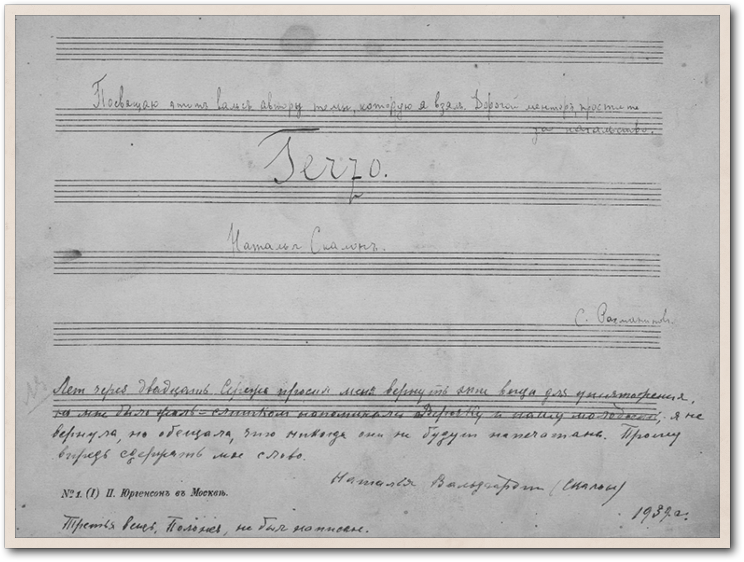 Посвящаю этотъ вальсъ автору темы, которую я взял. Дорогой менторъ простите
за нахальство.
Terzo.
Наталья Скалонъ.
С. Рахманиновъ.
Лет через двадцать Сережа просил меня вернуть эти вещи для уничтожения,
но мне было жаль – слишком напоминали и нашу молодость, я не
вернула, но обещала, что никогда они не будут напечатаны. Прошу
впредь сдержать мое слово.
Наталья Вальдгардт (Скалон)
№ 1. (I) П. Юргенсонъ въ Москвѣ.
1939 г.
Третья вещь, Полонез, не был написан.